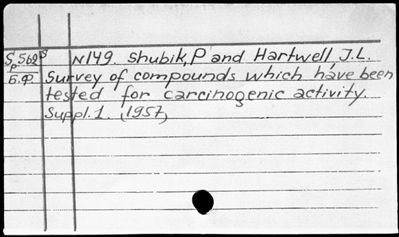 S 562 s N149. Shubik, P and Hartwell, J.L.
p
Б.Ф. Survey of compounds which have been
tested for carcinogenic activity.
Suppl. 1. (1957)